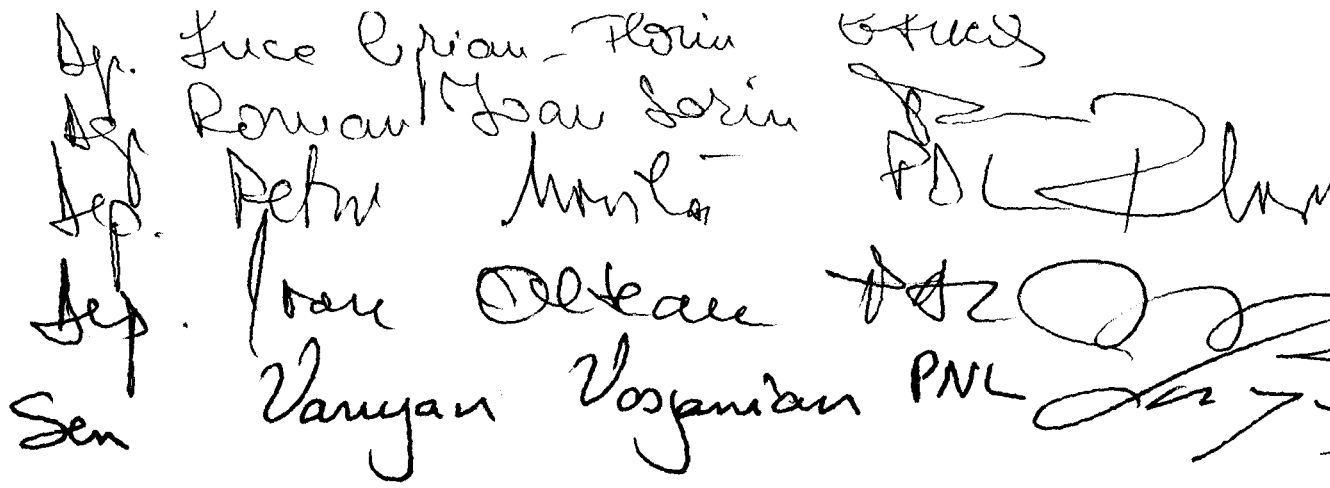 Dep. Luca Ciprian-Florin
Dep Roman Ioan Sorin
Dep. Petru Movilă PDL
Dep. Ioan Oltean PDL
Sen Varujan Vosganian PNL